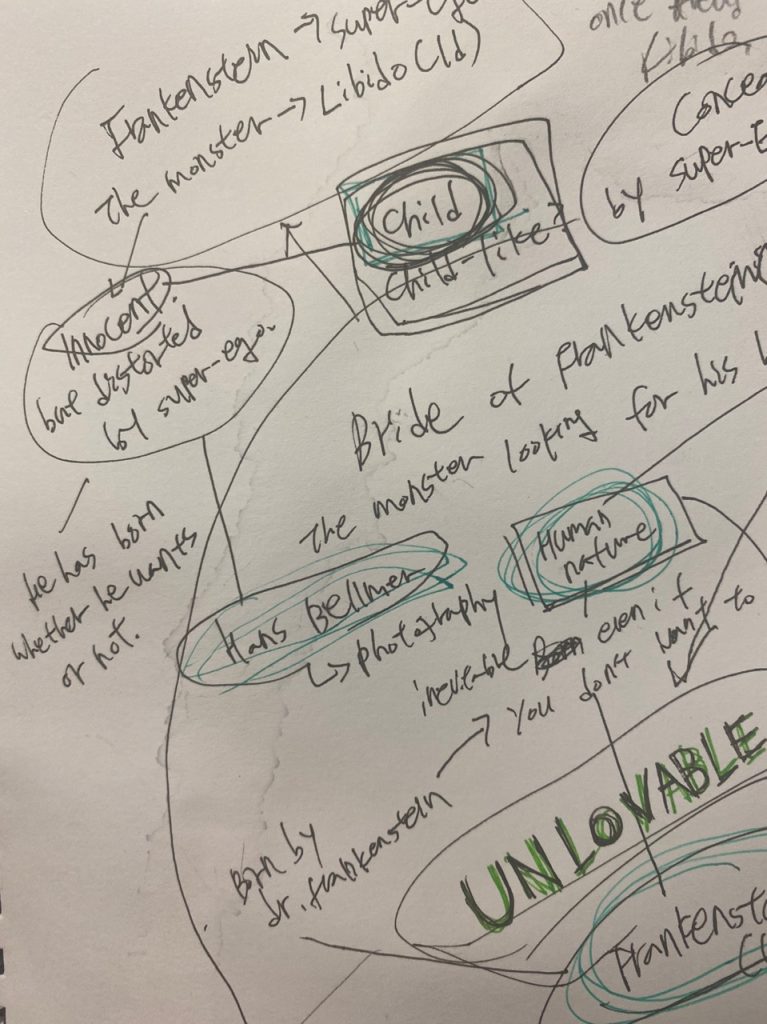 Frankenstein → super-Ego
The monster → Libido (Id)
once
Libido.
by super-E
Child
child-like?
Innocent.
but distorted
by super-ego.
He has born
whether he wants
or not.
Bride of Frankenstein
The monster looking for his
Human
nature
Hans Bellmer
↳ photography
inevitable even if
you don't want to
Born by
dr. frankenstein
UNLOVABLE